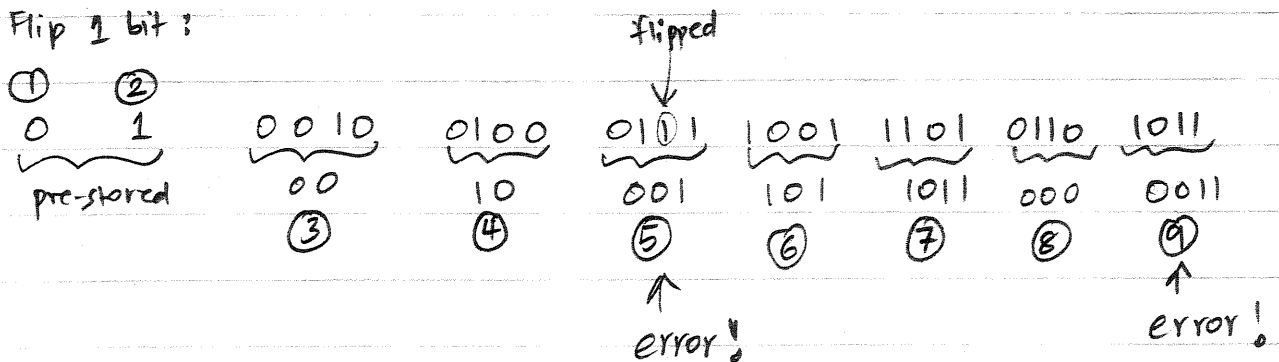 Flip 1 bit :
flipped
① ②
0 1 0010 0100 0111 1001 1101 0110 1011
pre-stored 00 10 001 101 1011 000 0011
③ ④ ⑤ ⑥ ⑦ ⑧ ⑨
error! error!